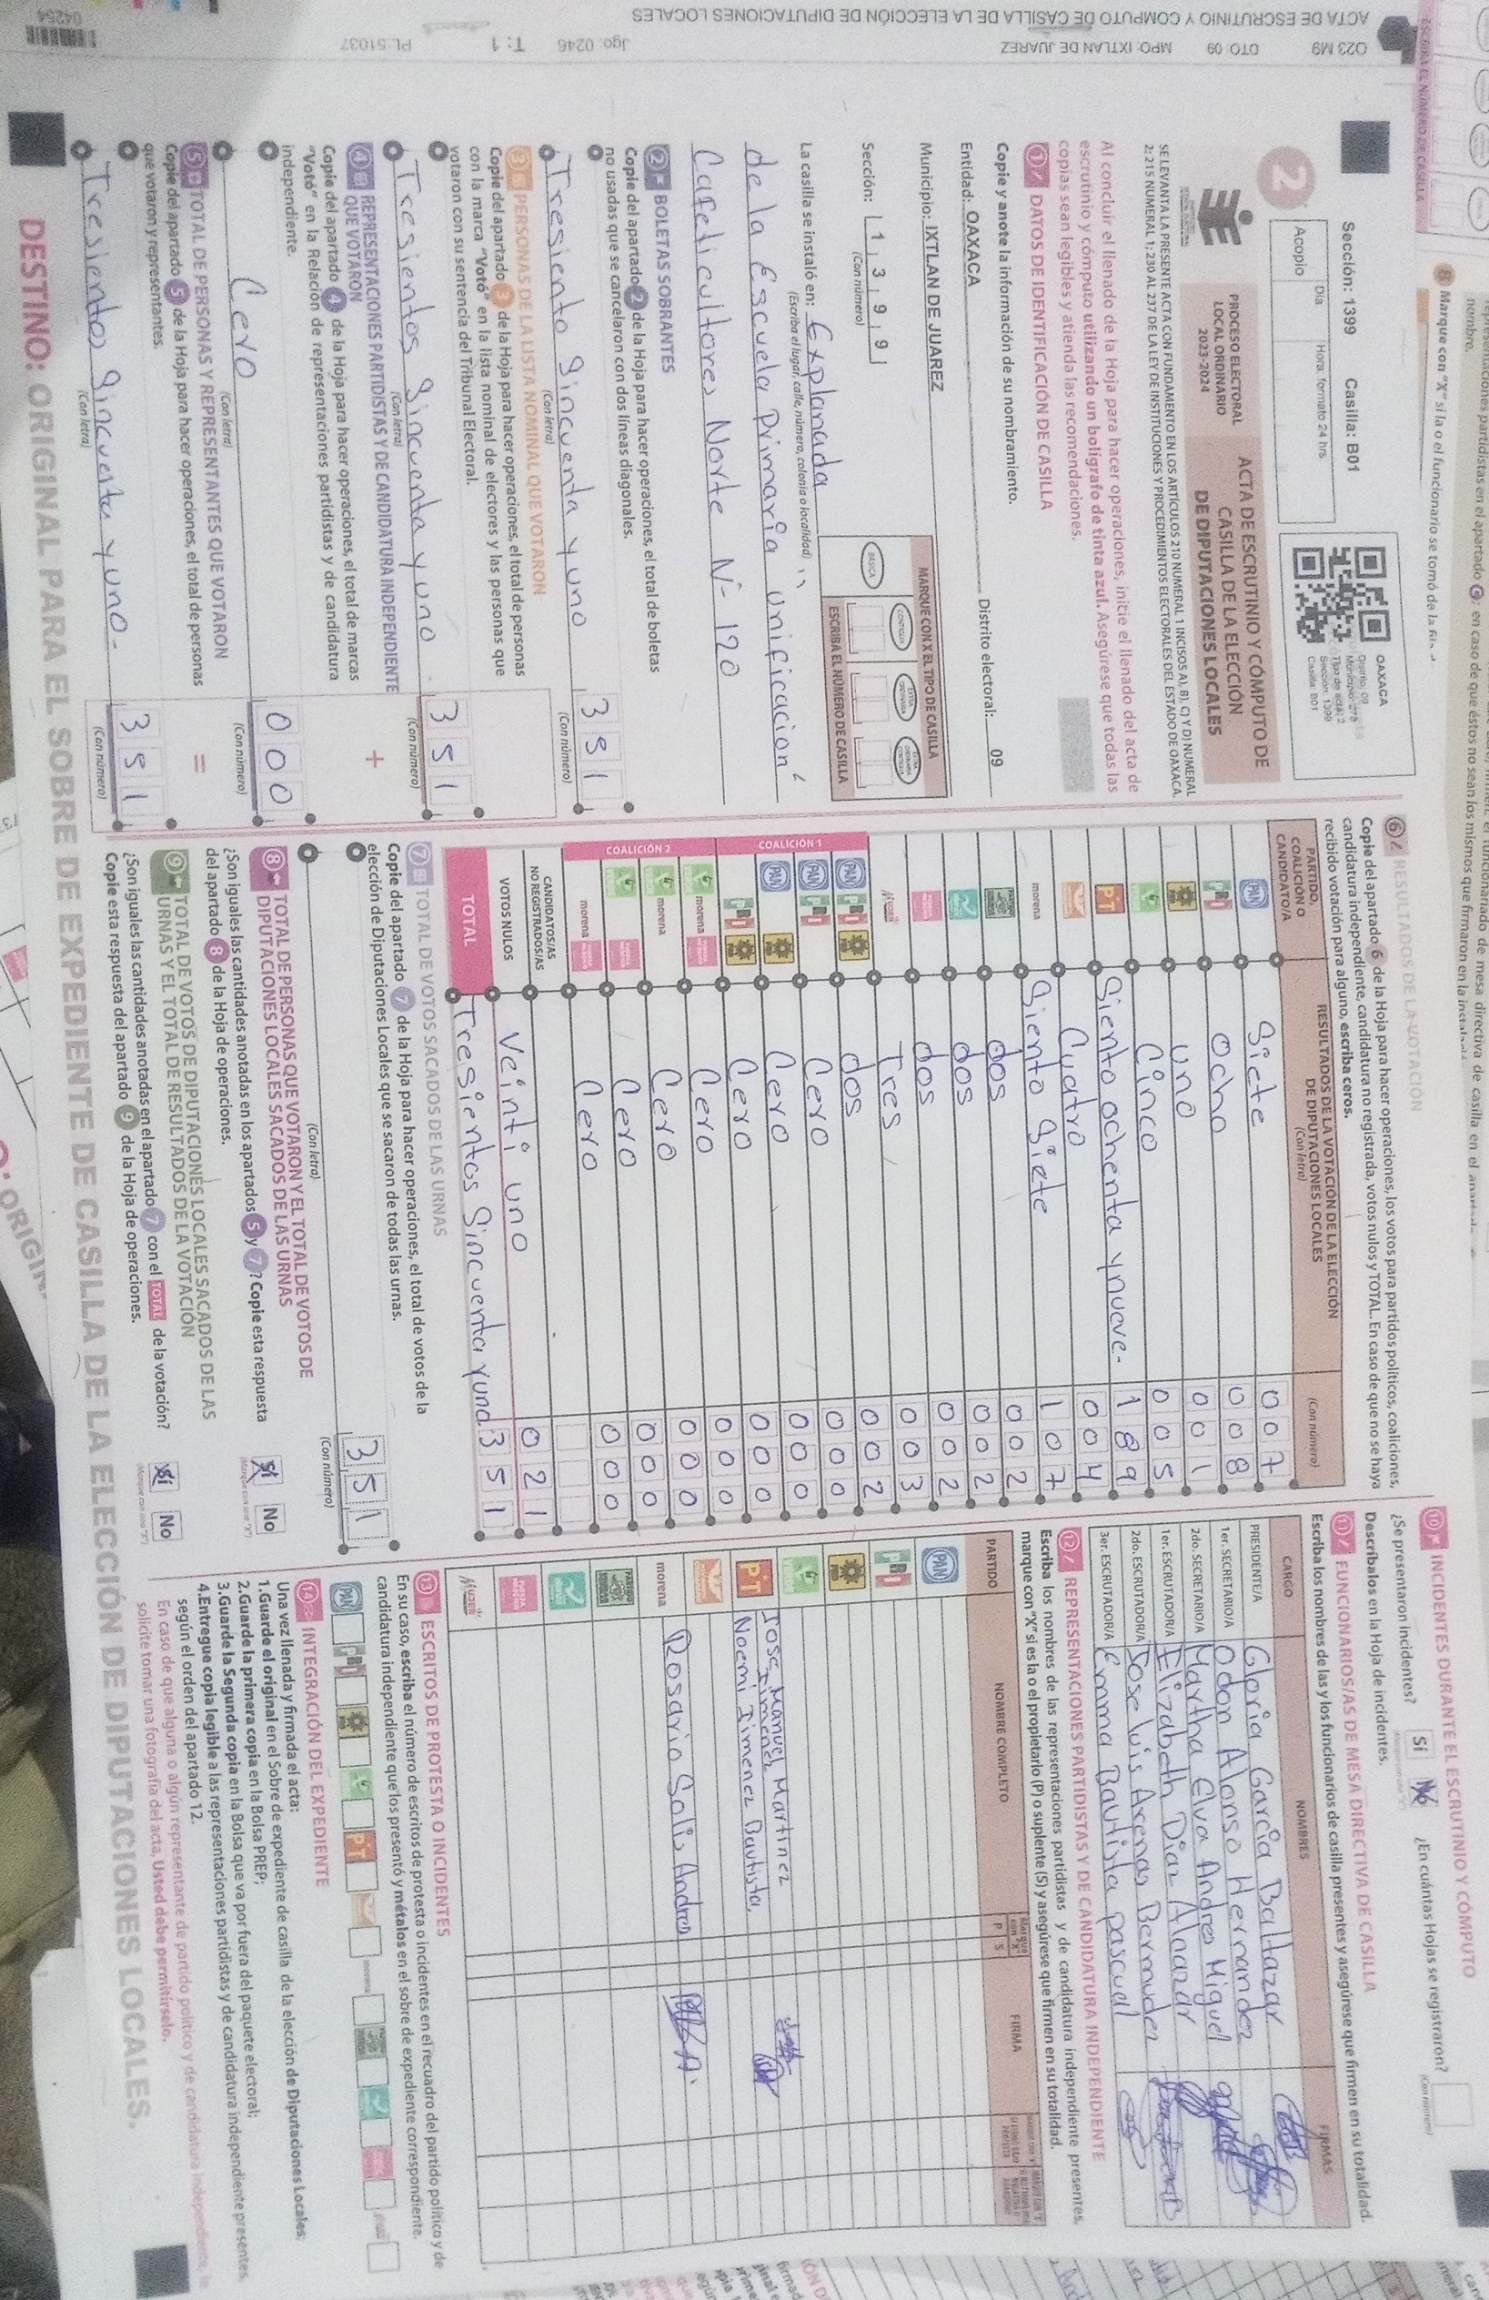 ACTA DE ESCRUTINIO Y CÓMPUTO DE CASILLA DE LA ELECCIÓN DE DIPUTACIONES LOCALES
O23 M9 DTO: 09 MPO: IXTLAN DE JUAREZ Jgo: 0246 T: 1 PL:51037
04254
8 Marque con "X" si la o el funcionario se tomó de la fila
Sección: 1399 Casilla: B01
Día Hora: formato 24 hrs.
Acopio
OAXACA
Distrito: 09
Sección: 1399
Casilla: B01
2
PROCESO ELECTORAL
LOCAL ORDINARIO
2023-2024
ACTA DE ESCRUTINIO Y CÓMPUTO DE
CASILLA DE LA ELECCIÓN
DE DIPUTACIONES LOCALES
SE LEVANTA LA PRESENTE ACTA CON FUNDAMENTO EN LOS ARTÍCULOS 210 NUMERAL 1 INCISOS A), B), C) Y D) NUMERAL
2; 215 NUMERAL 1; 230 AL 237 DE LA LEY DE INSTITUCIONES Y PROCEDIMIENTOS ELECTORALES DEL ESTADO DE OAXACA.
Al concluir el llenado de la Hoja para hacer operaciones, inicie el llenado del acta de
escrutinio y cómputo utilizando un bolígrafo de tinta azul. Asegúrese que todas las
copias sean legibles y atienda las recomendaciones.
1 DATOS DE IDENTIFICACIÓN DE CASILLA
Copie y anote la información de su nombramiento.
Entidad: OAXACA Distrito electoral: 09
Municipio: IXTLAN DE JUAREZ
Sección: 1 3 9 9
(Con número)
MARQUE CON X EL TIPO DE CASILLA
BÁSICA
ESCRIBA EL NÚMERO DE CASILLA
La casilla se instaló en: Explanada
(Escriba el lugar, calle, número, colonia o localidad)
de la Escuela primaria unificacion
Cafeticultores Norte N- 120
2 BOLETAS SOBRANTES
Copie del apartado 2 de la Hoja para hacer operaciones, el total de boletas
no usadas que se cancelaron con dos líneas diagonales.
Tresiento Sincuenta y uno 351
(Con letra) (Con número)
3 PERSONAS DE LA LISTA NOMINAL QUE VOTARON
Copie del apartado 3 de la Hoja para hacer operaciones, el total de personas
con la marca "Votó" en la lista nominal de electores y las personas que
votaron con su sentencia del Tribunal Electoral.
Tresientos Sincuenta y uno. 351
(Con letra) (Con número)
4 REPRESENTACIONES PARTIDISTAS Y DE CANDIDATURA INDEPENDIENTE
QUE VOTARON
Copie del apartado 4 de la Hoja para hacer operaciones, el total de marcas
"Votó" en la Relación de representaciones partidistas y de candidatura
independiente.
Cero 000
(Con letra) (Con número)
5 TOTAL DE PERSONAS Y REPRESENTANTES QUE VOTARON
Copie del apartado 5 de la Hoja para hacer operaciones, el total de personas
que votaron y representantes.
Tresientos Sincuenta y uno- 351
(Con letra) (Con número)
6 RESULTADOS DE LA VOTACIÓN
Copie del apartado 6 de la Hoja para hacer operaciones, los votos para partidos políticos, coaliciones,
candidatura independiente, candidatura no registrada, votos nulos y TOTAL. En caso de que no se haya
recibido votación para alguno, escriba ceros.
PARTIDO, COALICIÓN O CANDIDATO/A
RESULTADOS DE LA VOTACIÓN DE LA ELECCIÓN DE DIPUTACIONES LOCALES
(Con letra) (Con número)
PAN Siete 007
PRI Ocho 008
PRD uno 001
Cinco 005
PT Siento ochenta y nueve. 189
Cuatro 004
morena Siento Siete 107
dos 002
dos 002
dos 002
MUJER Tres 003
COALICIÓN 1
PAN PRI PRD dos 002
PAN PRI Cero 000
PAN PRD Cero 000
PRI PRD Cero 000
COALICIÓN 2
morena Cero 000
morena Cero 000
Cero 000
morena Cero 000
CANDIDATOS/AS NO REGISTRADOS/AS
VOTOS NULOS Veinti uno 021
TOTAL Tresientos Sincuenta y uno. 351
7 TOTAL DE VOTOS SACADOS DE LAS URNAS
Copie del apartado 7 de la Hoja para hacer operaciones, el total de votos de la
elección de Diputaciones Locales que se sacaron de todas las urnas.
351
(Con letra) (Con número)
8 TOTAL DE PERSONAS QUE VOTARON Y EL TOTAL DE VOTOS DE
DIPUTACIONES LOCALES SACADOS DE LAS URNAS
¿Son iguales las cantidades anotadas en los apartados 5 y 7? Copie esta respuesta
del apartado 8 de la Hoja de operaciones.
Sí No
9 TOTAL DE VOTOS DE DIPUTACIONES LOCALES SACADOS DE LAS
URNAS Y EL TOTAL DE RESULTADOS DE LA VOTACIÓN
¿Son iguales las cantidades anotadas en el apartado 7 con el TOTAL de la votación?
Copie esta respuesta del apartado 9 de la Hoja de operaciones.
Sí No
10 INCIDENTES DURANTE EL ESCRUTINIO Y CÓMPUTO
¿Se presentaron incidentes? Sí No ¿En cuántas Hojas se registraron?
(Con número)
Descríbalos en la Hoja de incidentes.
11 FUNCIONARIOS/AS DE MESA DIRECTIVA DE CASILLA
Escriba los nombres de las y los funcionarios de casilla presentes y asegúrese que firmen en su totalidad.
CARGO NOMBRES FIRMAS
PRESIDENTE/A Gloria Garcia Baltazar
1er. SECRETARIO/A Odon Alonso Hernandez
2do. SECRETARIO/A Martha Elva Andres Miguel
1er. ESCRUTADOR/A Elizabeth Diaz Alcazar
2do. ESCRUTADOR/A Jose luis Arenas Bermudez
3er. ESCRUTADOR/A Emma Bautista pascual
12 REPRESENTACIONES PARTIDISTAS Y DE CANDIDATURA INDEPENDIENTE
Escriba los nombres de las representaciones partidistas y de candidatura independiente presentes,
marque con "X" si es la o el propietario (P) o suplente (S) y asegúrese que firmen en su totalidad.
PARTIDO NOMBRE COMPLETO P S FIRMA
PAN
PRI
PRD
Jose Manuel Martinez
Jimenez
PT Noemi Jimenez Bautista,
morena Rosario Solis Andres
MUJER
13 ESCRITOS DE PROTESTA O INCIDENTES
En su caso, escriba el número de escritos de protesta o incidentes en el recuadro del partido político y de
candidatura independiente que los presentó y métalos en el sobre de expediente correspondiente.
PAN PRI PRD PT
14 INTEGRACIÓN DEL EXPEDIENTE
Una vez llenada y firmada el acta:
1.Guarde el original en el Sobre de expediente de casilla de la elección de Diputaciones Locales;
2.Guarde la primera copia en la Bolsa PREP;
3.Guarde la Segunda copia en la Bolsa que va por fuera del paquete electoral;
4.Entregue copia legible a las representaciones partidistas y de candidatura independiente presentes,
según el orden del apartado 12.
En caso de que alguna o algún representante de partido político y de candidatura independiente, le
solicite tomar una fotografía del acta, Usted debe permitírselo.
DESTINO: ORIGINAL PARA EL SOBRE DE EXPEDIENTE DE CASILLA DE LA ELECCIÓN DE DIPUTACIONES LOCALES.